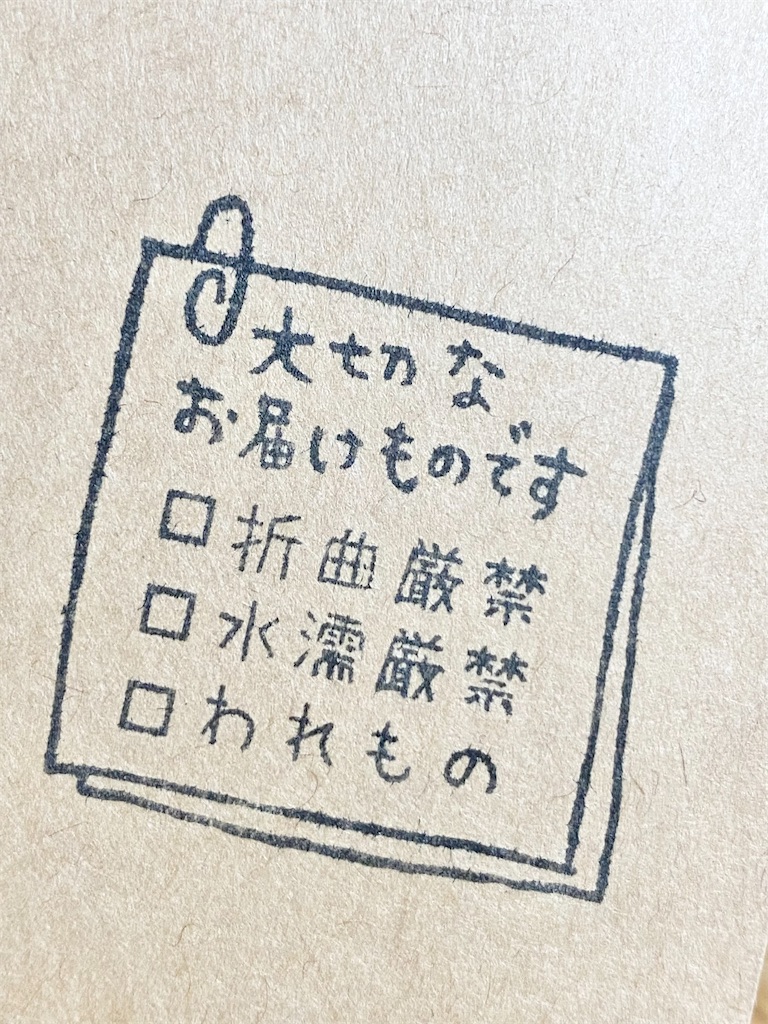 大切な
お届けものです
□折曲厳禁
□水濡厳禁
□われもの